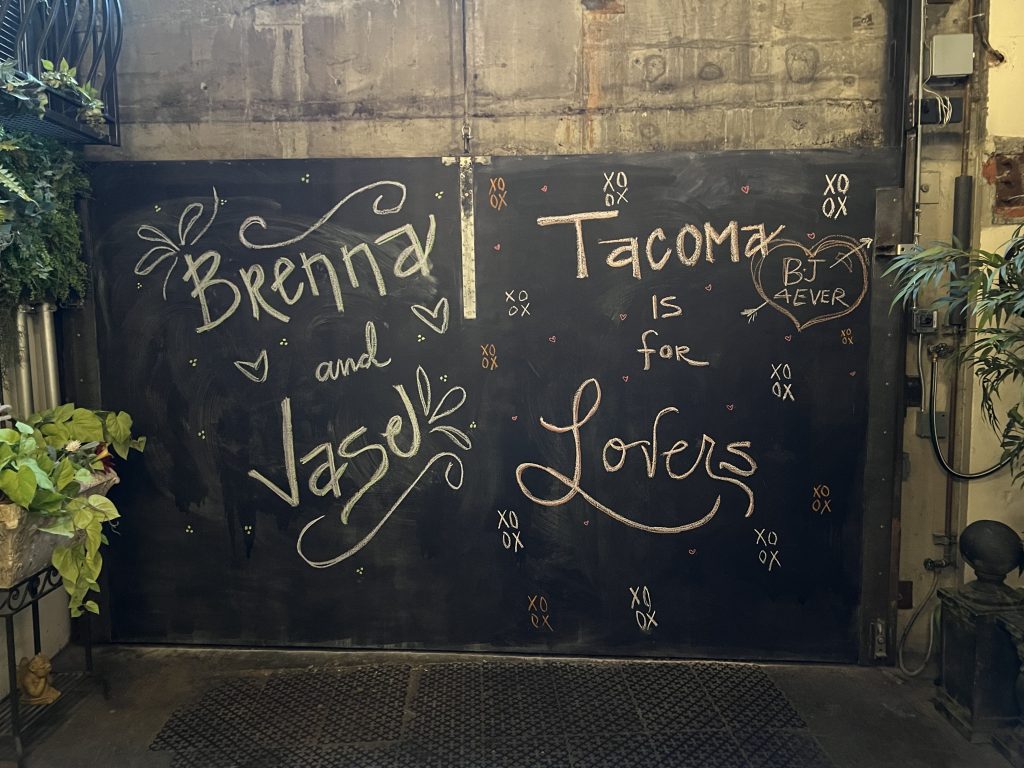 Brenna
and
Vasel
Tacoma
is
for
Lovers
BJ
4EVER
XO
OX
XO
OX
XO
OX
XO
OX
XO
OX
XO
OX
XO
OX
XO
OX
XO
OX
XO
OX
XO
OX
XO
OX